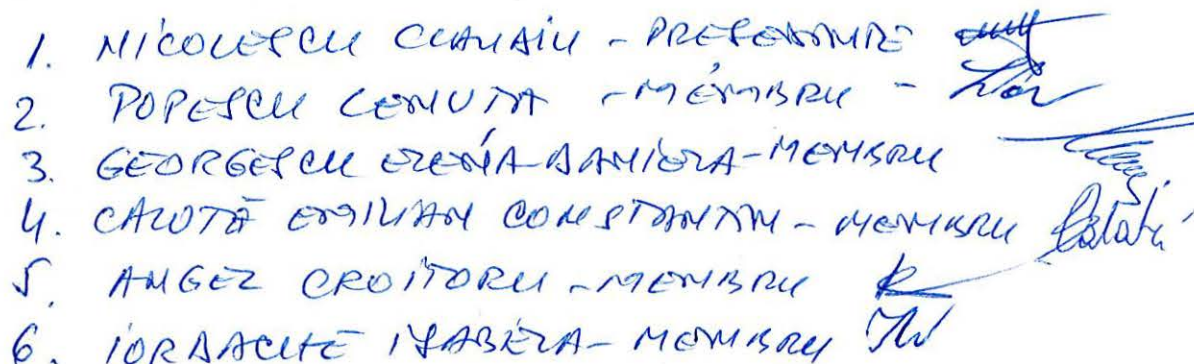 1. NICOLESCU CLAUDIU - PRESEDINTE
2. POPESCU LENUTA - MEMBRU -
3. GEORGESCU ELENA-DANIELA-MEMBRU
4. CALOTĂ EMILIAN CONSTANTIN - MEMBRU
5. ANGEL CROITORU - MEMBRU
6. IORDACHE ISABELA - MEMBRU